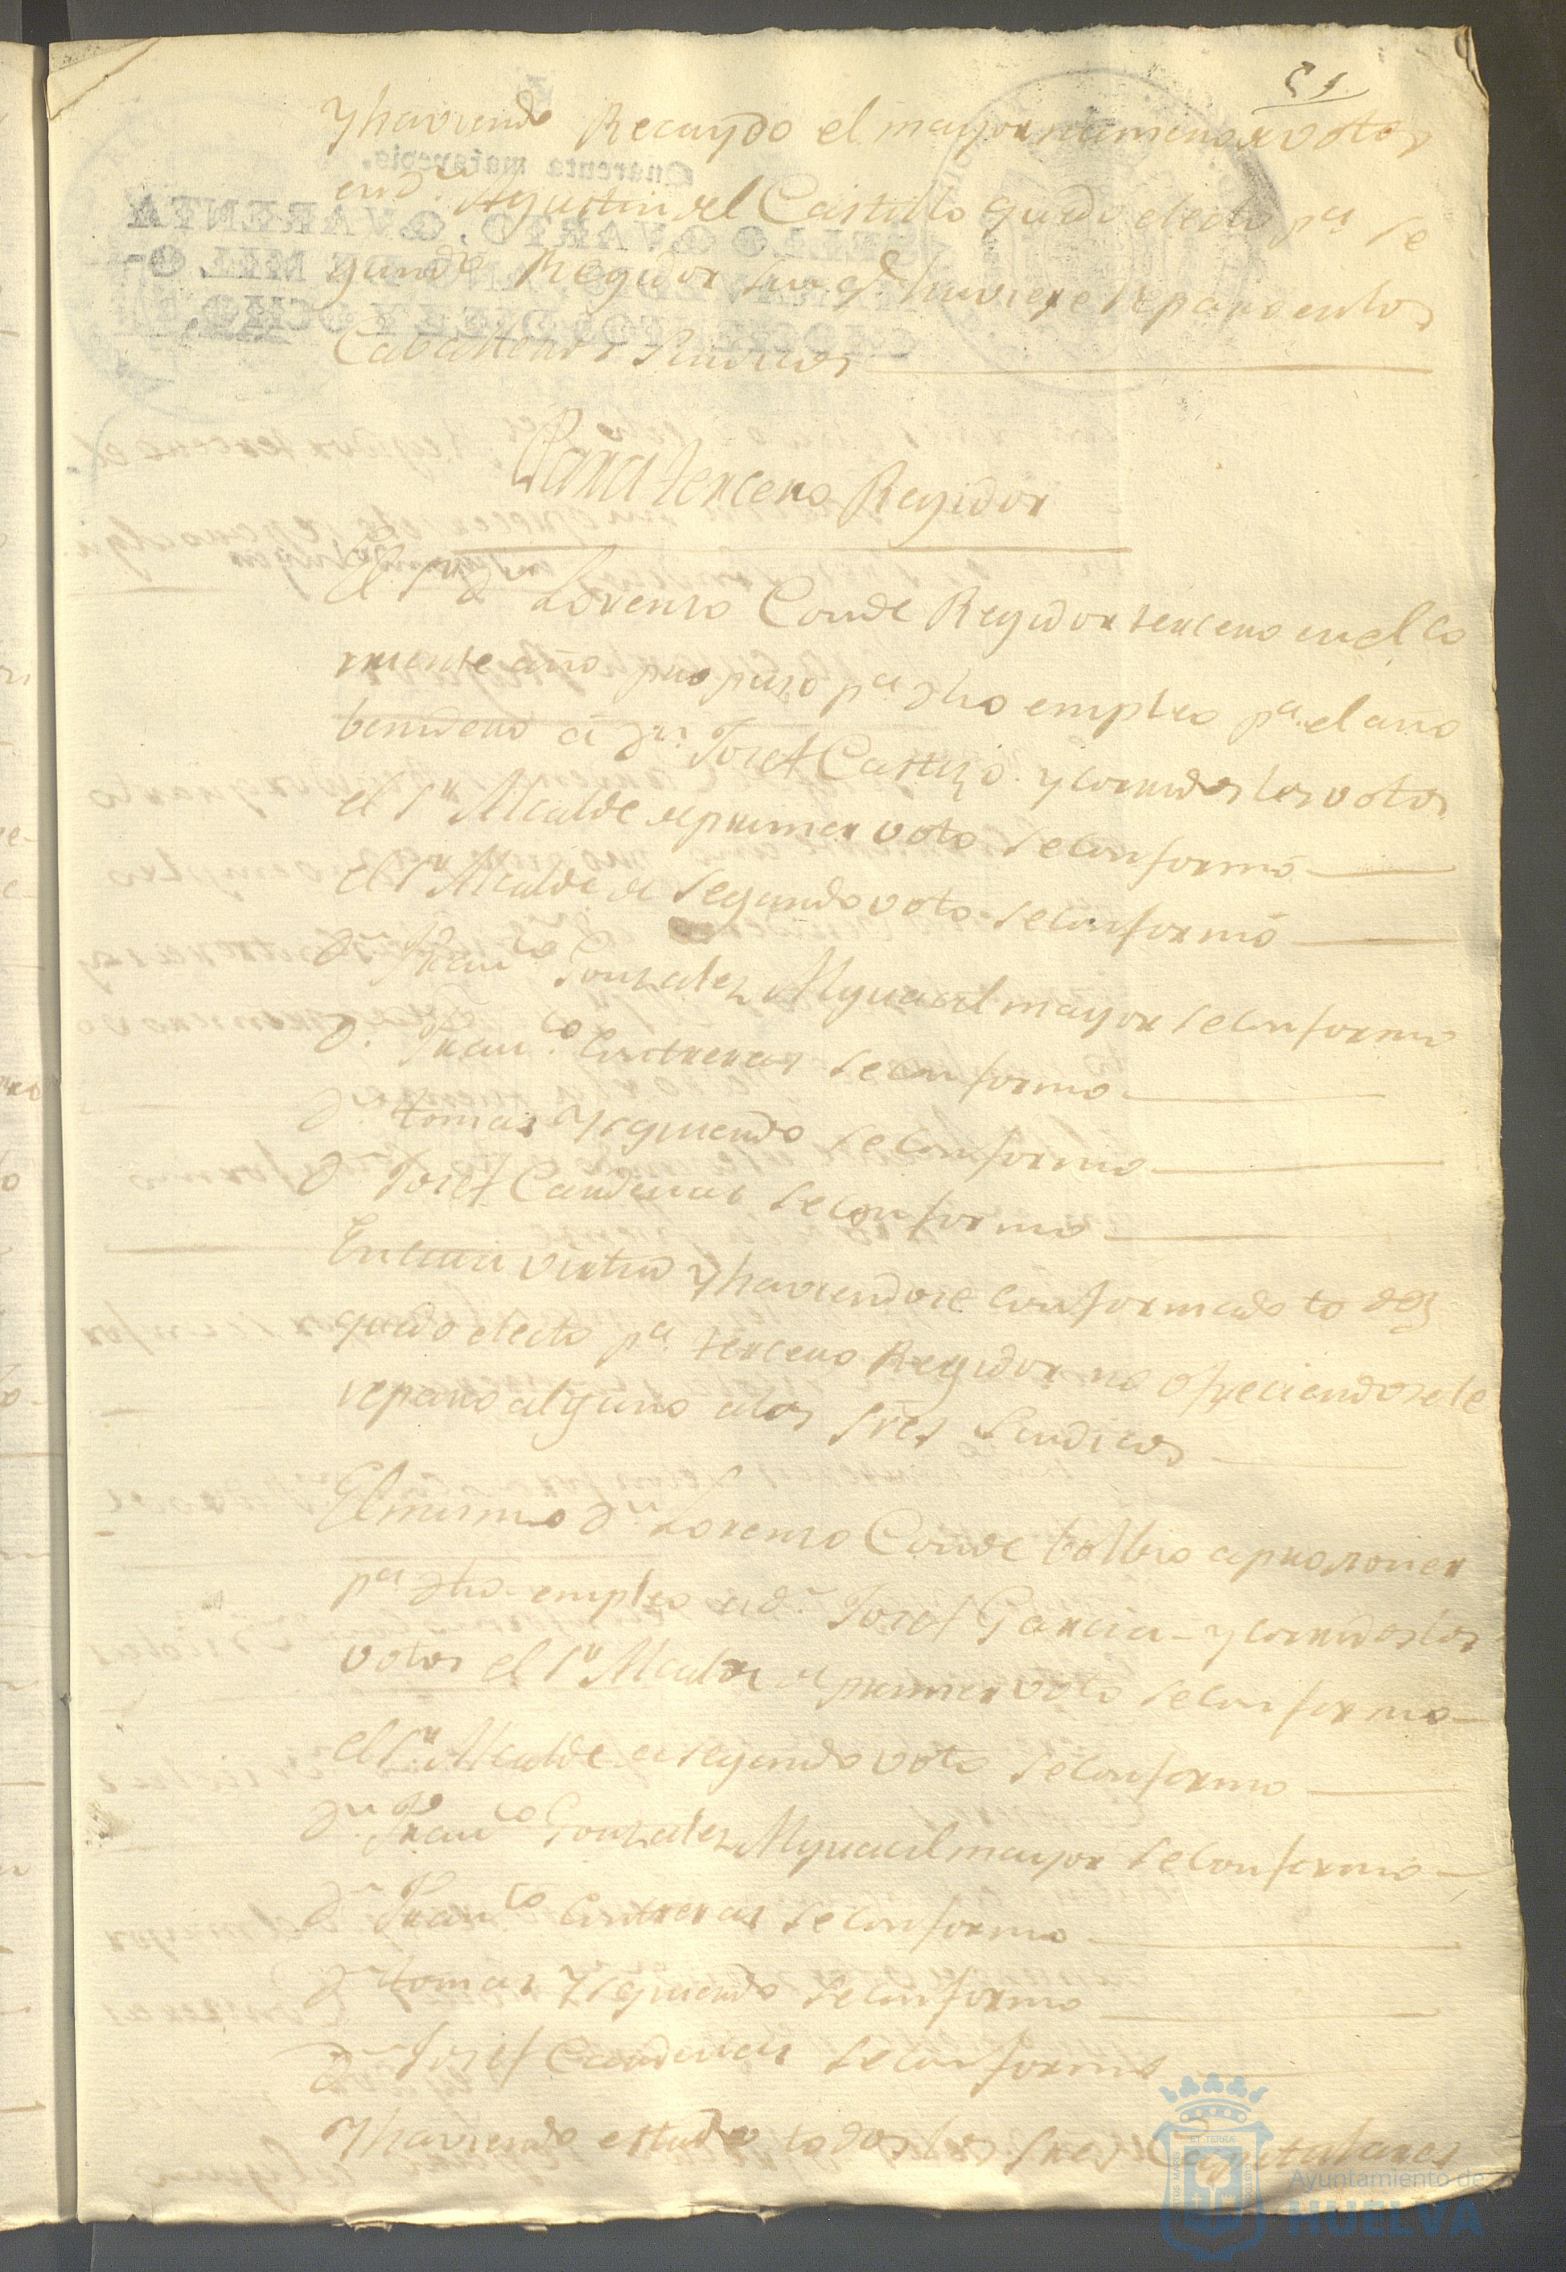 51
Y haviendo Recaydo el mayor numero de votos
en dn. Agustin del Castillo quedo electo pa. Se
gundo Regidor sin qe. huviere reparo en los
Caballeros Sindicos
Para tercero Regidor
El Sr dn Lorenzo Conde Regidor tercero en el co
rriente año propuso pa. dho empleo pa. el año
benidero a dn. Josef Castizo y corridos los votos
el Sr Alcalde de primer voto se conformó
el Sr Alcalde de Segundo voto se conformó
dn Franco Gonzalez Alguacil mayor se conformo
d. Franco. Contreras se conformo
d. tomas Ysquierdo se conformo
d Josef Cardenas se conformo
En cuia virtud Y haviendose conformado todos
quedo electo pa. tercero Regidor no ofreciendosele
reparo alguno a los Sres Sindicos
El mismo dn. Lorenzo Conde bolbio a proponer
pa. dho empleo a dn Josef Garcia - y corridos los
votos el Sr Alcalde de primer voto se conformo
el Sr. Alcalde de segundo voto se conformo
dn. Franco Gonzalez Alguacil mayor se conformo
dn Franco Contreras se conformo
dn tomas Ysquierdo se conformo
dn Josef Cardenas se conformo
Y haviendo estado todos los Sres Capitulares
Ayuntamiento de
HUELVA